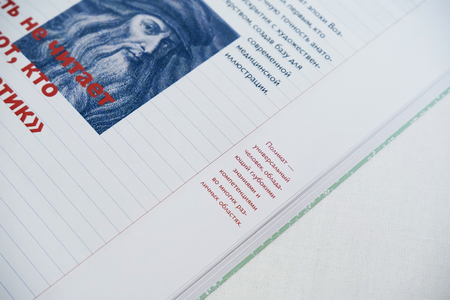 ть не читает
от, кто
атик»
эпохи Воз-
первым, кто
точную точность анато-
вскрытия с художествен-
ерством, создав базу для
современной
медицинской
иллюстрации.
Полимат —
универсальный
человек, облада-
ющий глубокими
знаниями и
компетенциями
во многих раз-
личных областях.